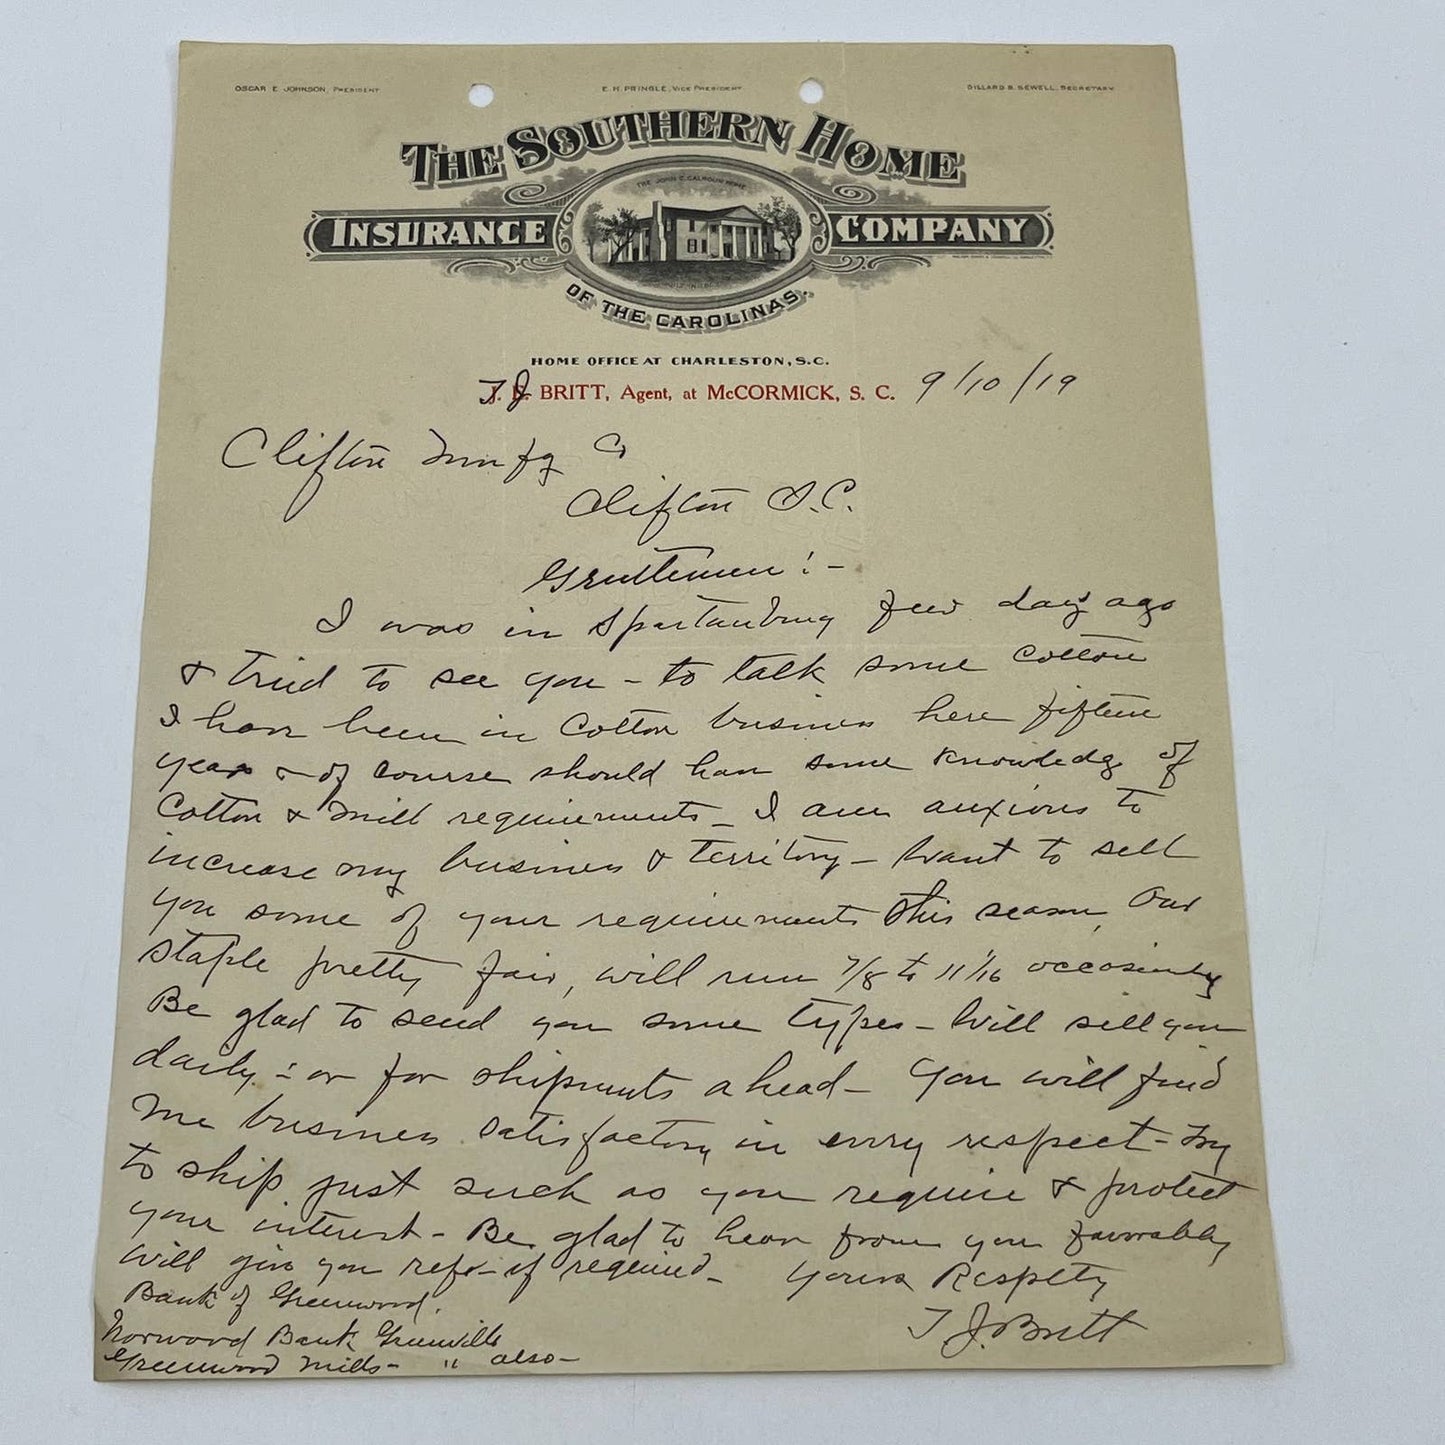 OSCAR E. JOHNSON, PRESIDENT
E. H. PRINGLE, VICE PRESIDENT
DILLARD B. SEWELL, SECRETARY
THE SOUTHERN HOME
THE JOHN C. CALHOUN HOME
INSURANCE COMPANY
OF THE CAROLINAS.
HOME OFFICE AT CHARLESTON, S.C.
T J BRITT, Agent, at McCORMICK, S. C. 9/10/19
Clifton Mnfg Co
Clifton S.C.
Gentlemen:-
I was in Spartanburg few days ago
& tried to see you – to talk some cotton
I have been in Cotton business here fifteen
years & of course should have some knowledge of
Cotton & mill requirements – I am anxious to
increase my business & territory – Want to sell
you some of your requirements this season, Our
staple pretty fair, will run 7/8 to 1 1/16 occasionly
Be glad to send you some types – Will sell you
daily – or for shipments ahead – You will find
me business satisfactory in every respect – Try
to ship just such as you require & protect
your interest – Be glad to hear from you favorably
Will give you refs – if required –
Yours Respctly
T J. Britt
Bank of Greenwood.
Norwood Bank Greenville
Greenwood Mills – " also –